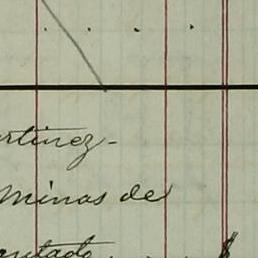 rtinez-
Minas de